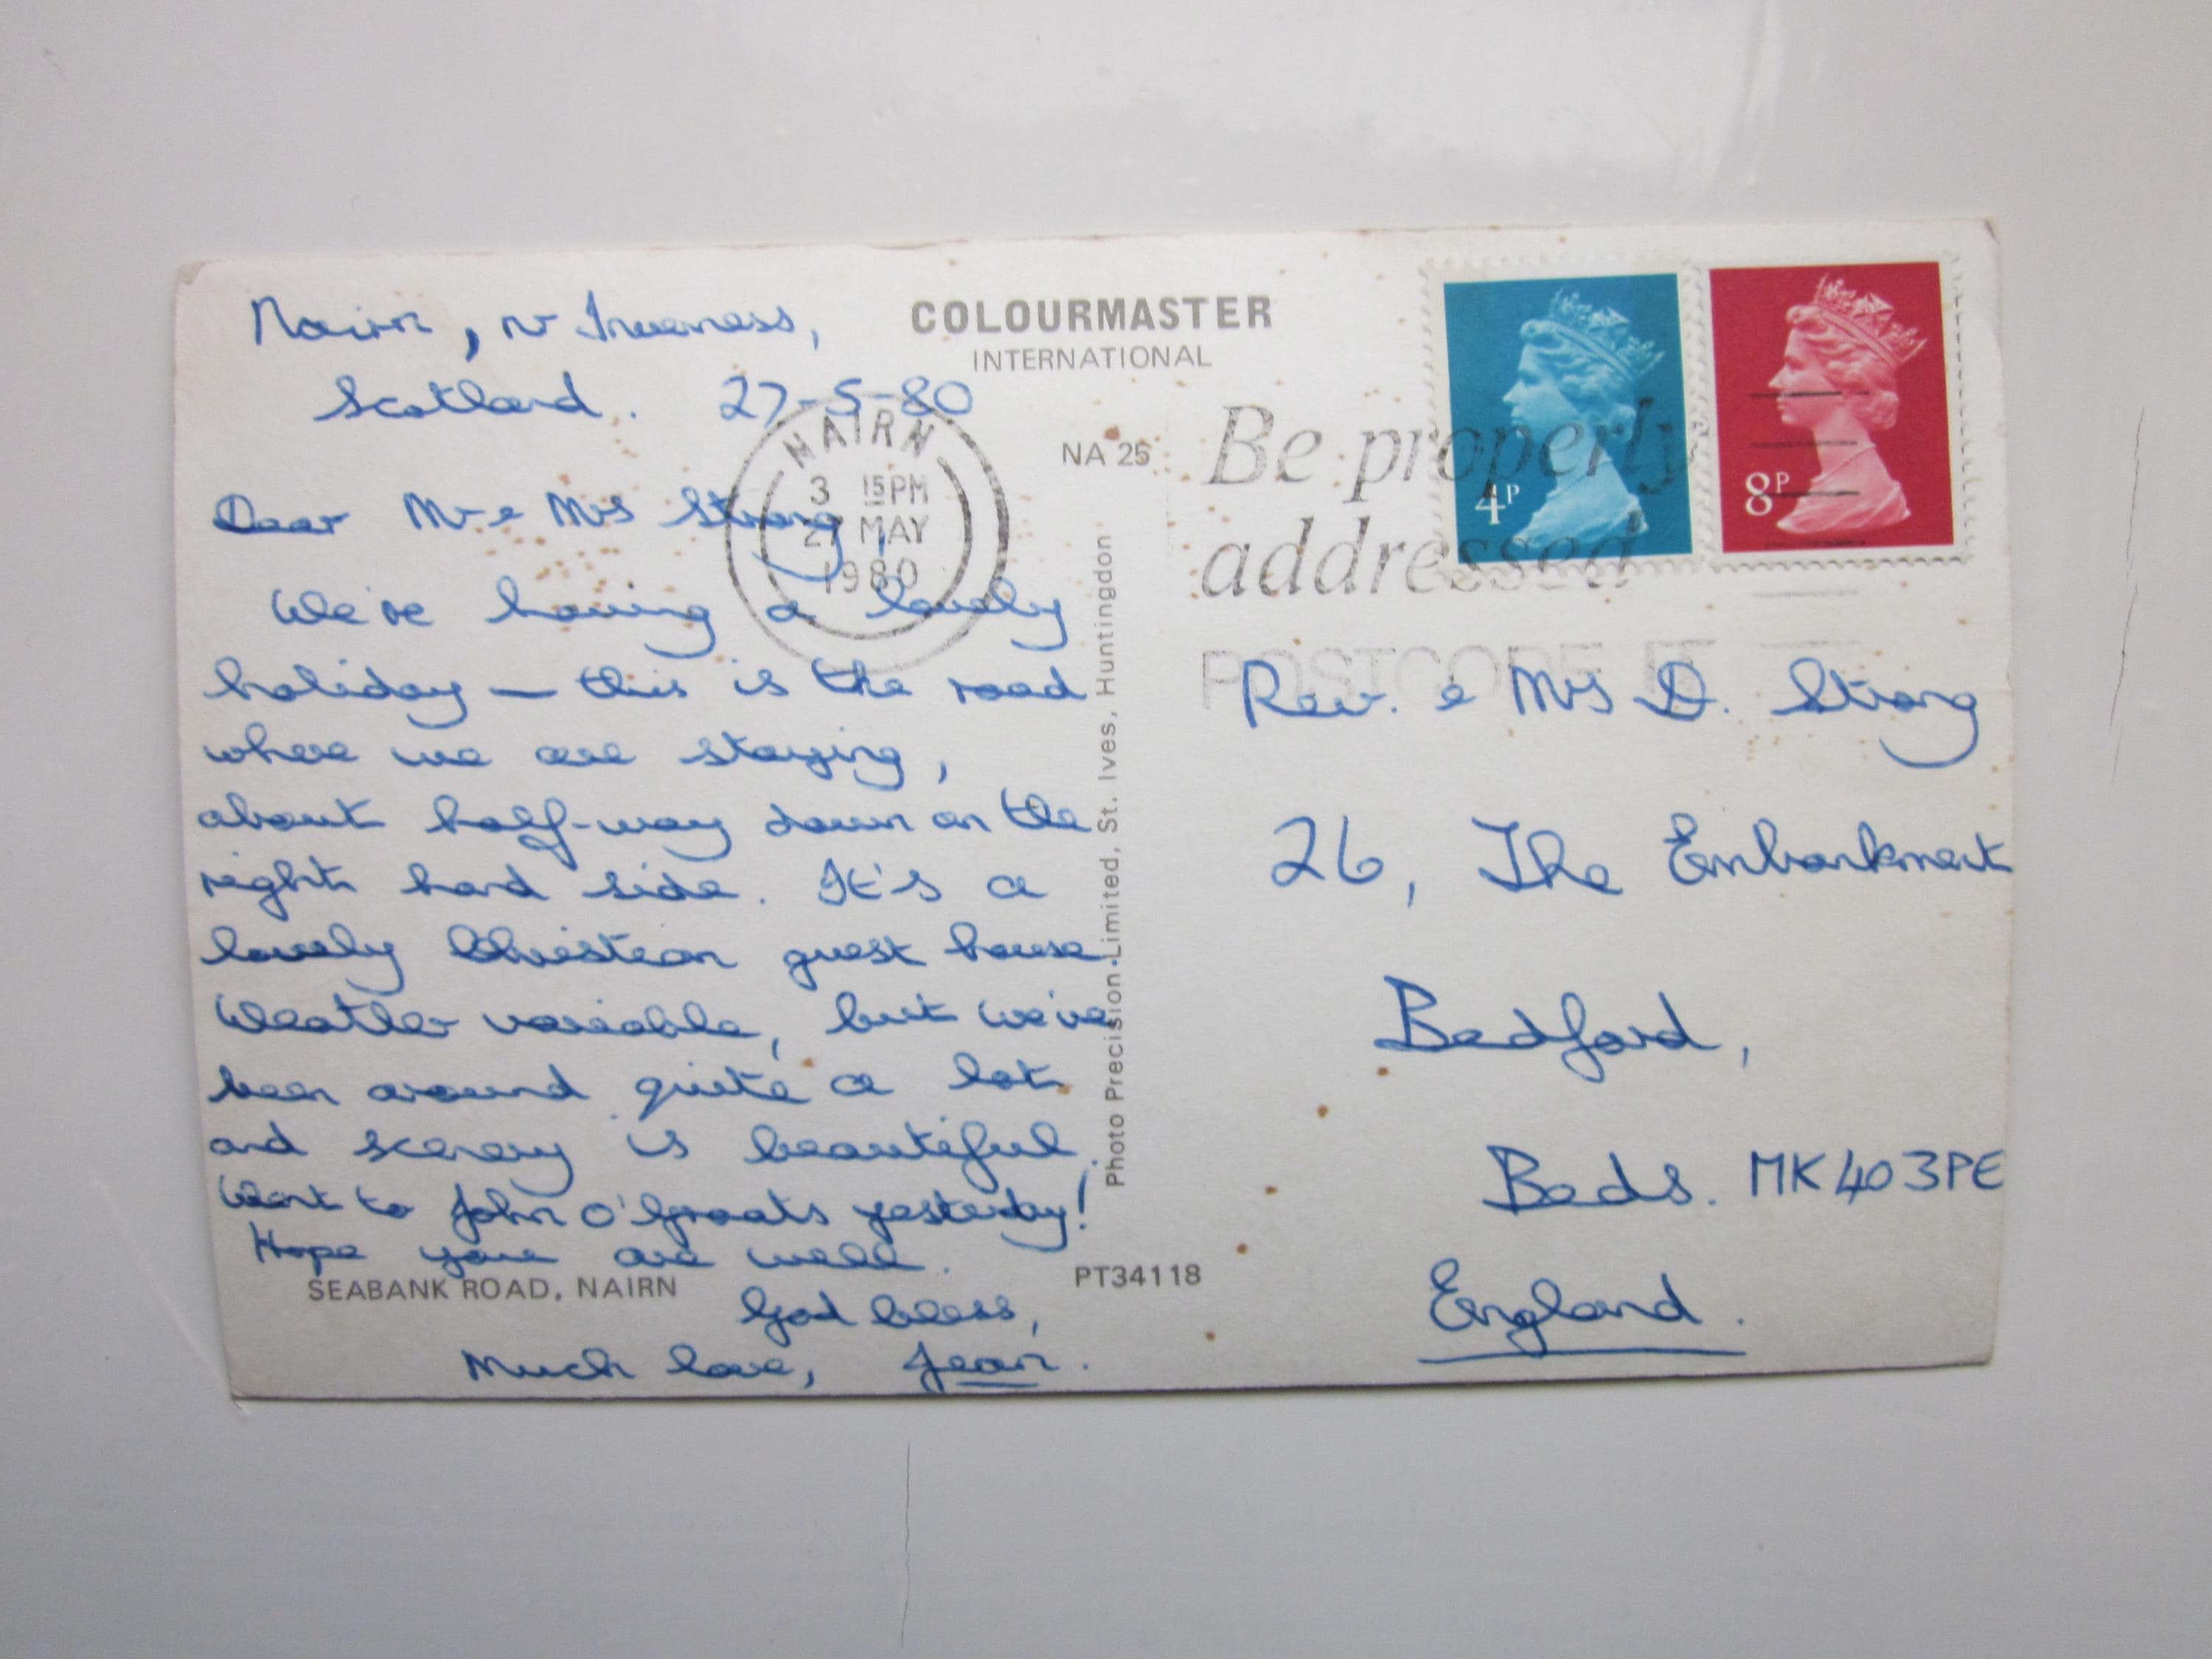 Nairn, nr Inverness,
Scotland. 27-5-80
Dear Mr & Mrs Strang,
We're having a lovely
holiday — this is the road
where we are staying,
about half-way down on the
right hand side. It's a
lovely Christian guest house.
Weather variable, but we've
been around quite a lot
and scenery is beautiful.
Went to John O'Groats yesterday!
Hope you are well.
God bless,
Much love, Jean.
SEABANK ROAD, NAIRN
COLOURMASTER
INTERNATIONAL
NA 25
NAIRN
3 15PM
27 MAY
1980
Photo Precision Limited, St. Ives, Huntingdon
PT34118
Be properly
addressed
POSTCODE IT
4P
8P
Rev. & Mrs D. Strang
26, The Embankment
Bedford,
Beds. MK40 3PE
England.